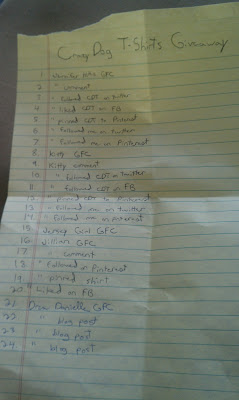 Crazy Dog T-Shirts Giveaway
1 GFC
2 " comment
3 " followed CDT on twitter
4 " liked CDT on FB
5 " pinned CDT to Pinterest
6 " Followed me on Twitter
7 " Followed me on Pinterest
8 Kitty GFC
9 Kitty comment
10 " followed CDT on twitter
11 " followed CDT on FB
12 " pinned CDT to Pinterest
13 " Followed me on twitter
14 " Followed me on Pinterest
15 Jersey Girl GFC
16 Lillian GFC
17 " comment
18 " Followed on Pinterest
19 " pinned shirt
20 " Liked on FB
21 Danielle GFC
22 " blog post
23 " blog post
24 " blog post